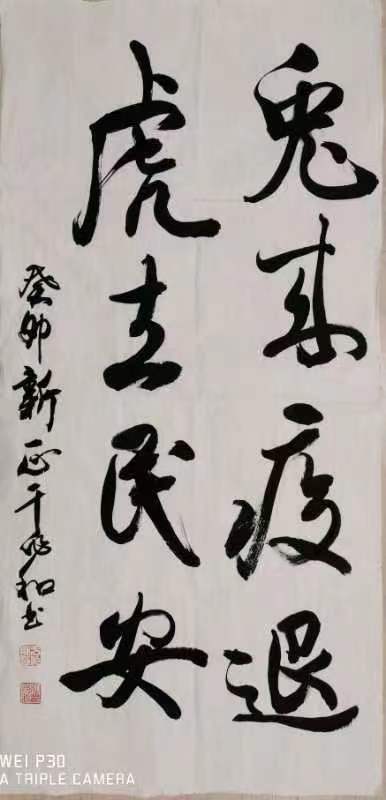 兎来疫退
虎去民安
癸卯新正于昨和书
WEI P30
A TRIPLE CAMERA